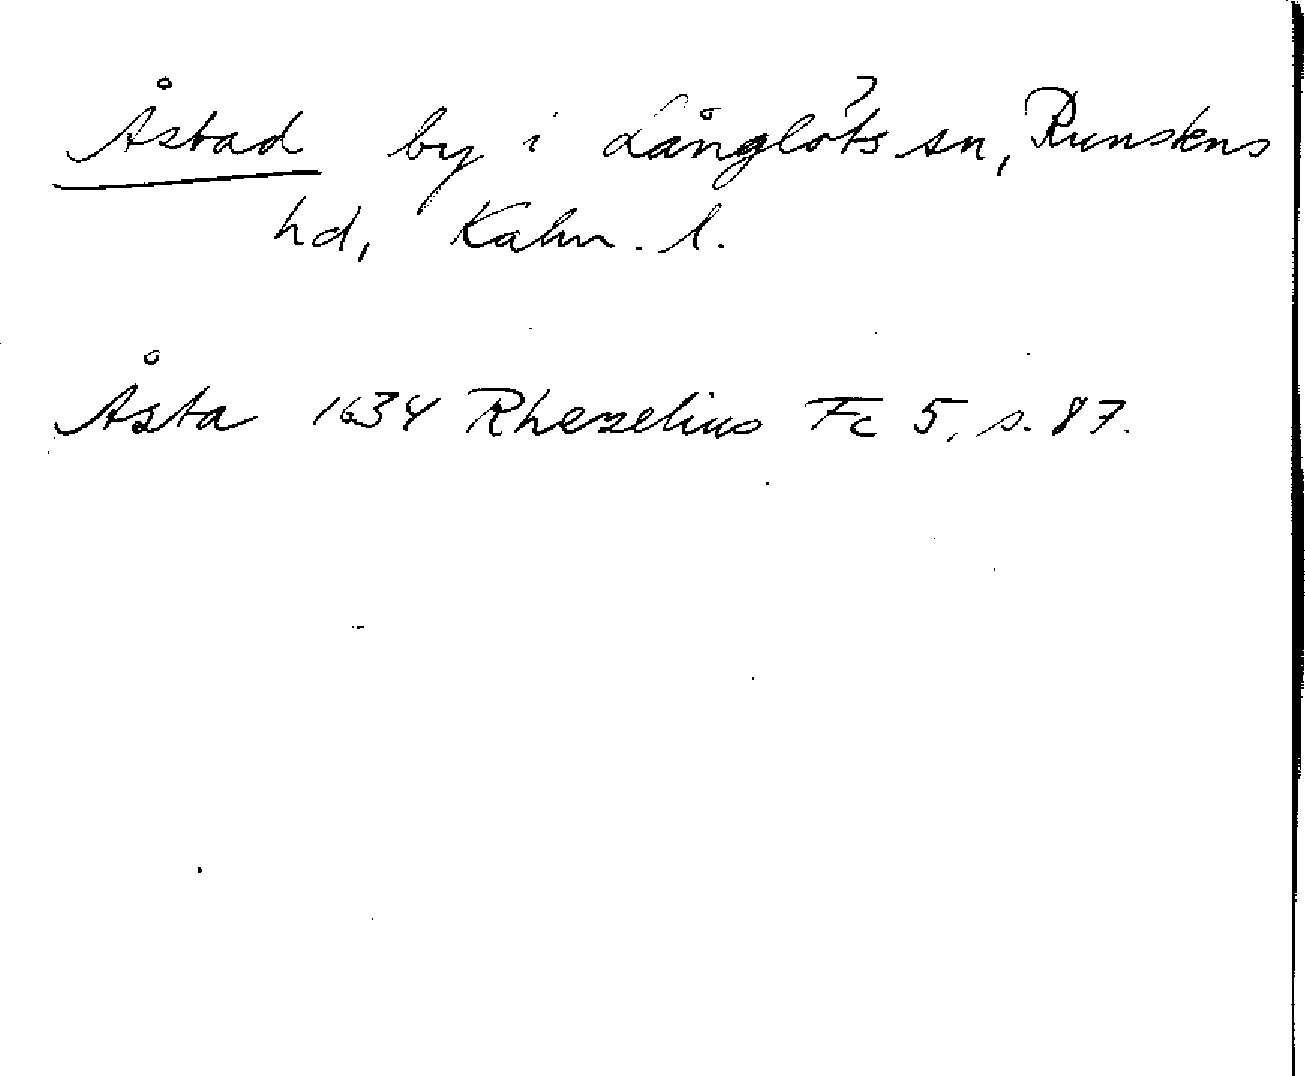 Åstad by i Långlöts sn, Runstens
hd, Kalm. l.
Åsta 1634 Rhezelius Fc 5, s. 87.